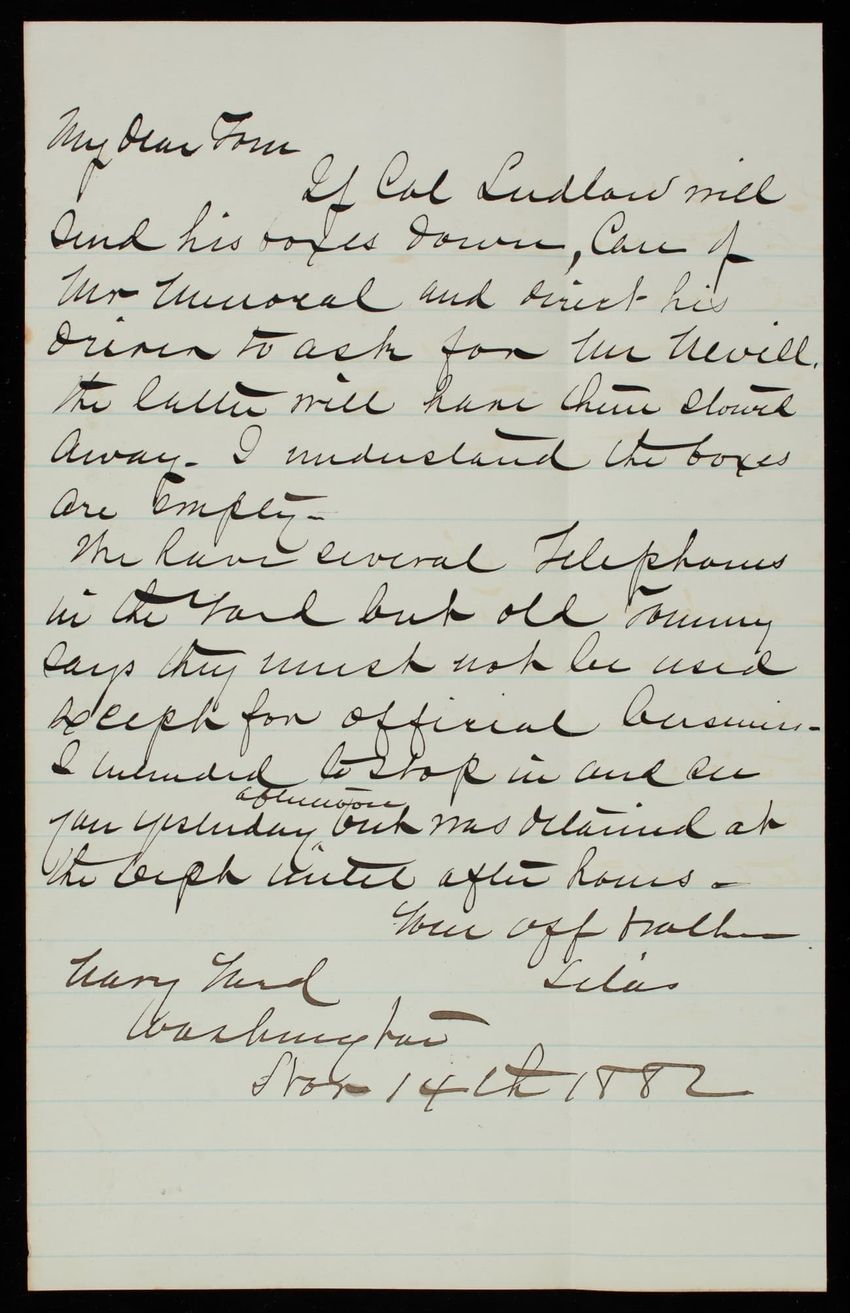 My Dear Tom
If Col Ludlow will
send his boxes down, Care of
Mr and direct his
driver to ask for Mr Nevill.
the latter will have them stowed
away - I understand the boxes
are empty -
We have several Telephones
in the Yard but old Tommy
says they must not be used
except for official business -
I intended to stop in and see
you yesterday afternoon but was detained at
the Dept until after hours -
Your aff brother
Silas
Navy Yard
Washington
Nov 14th 1882